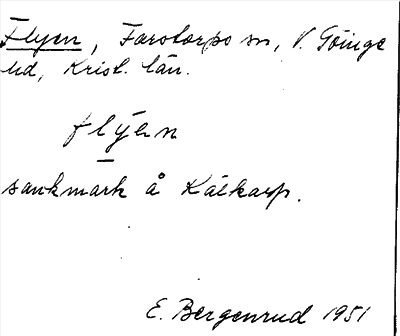 Flyen, Farstorps sn, V. Göinge
hd, Krist. län.
flýen
sankmark å Kälkarp.
E. Bergenrud 1951